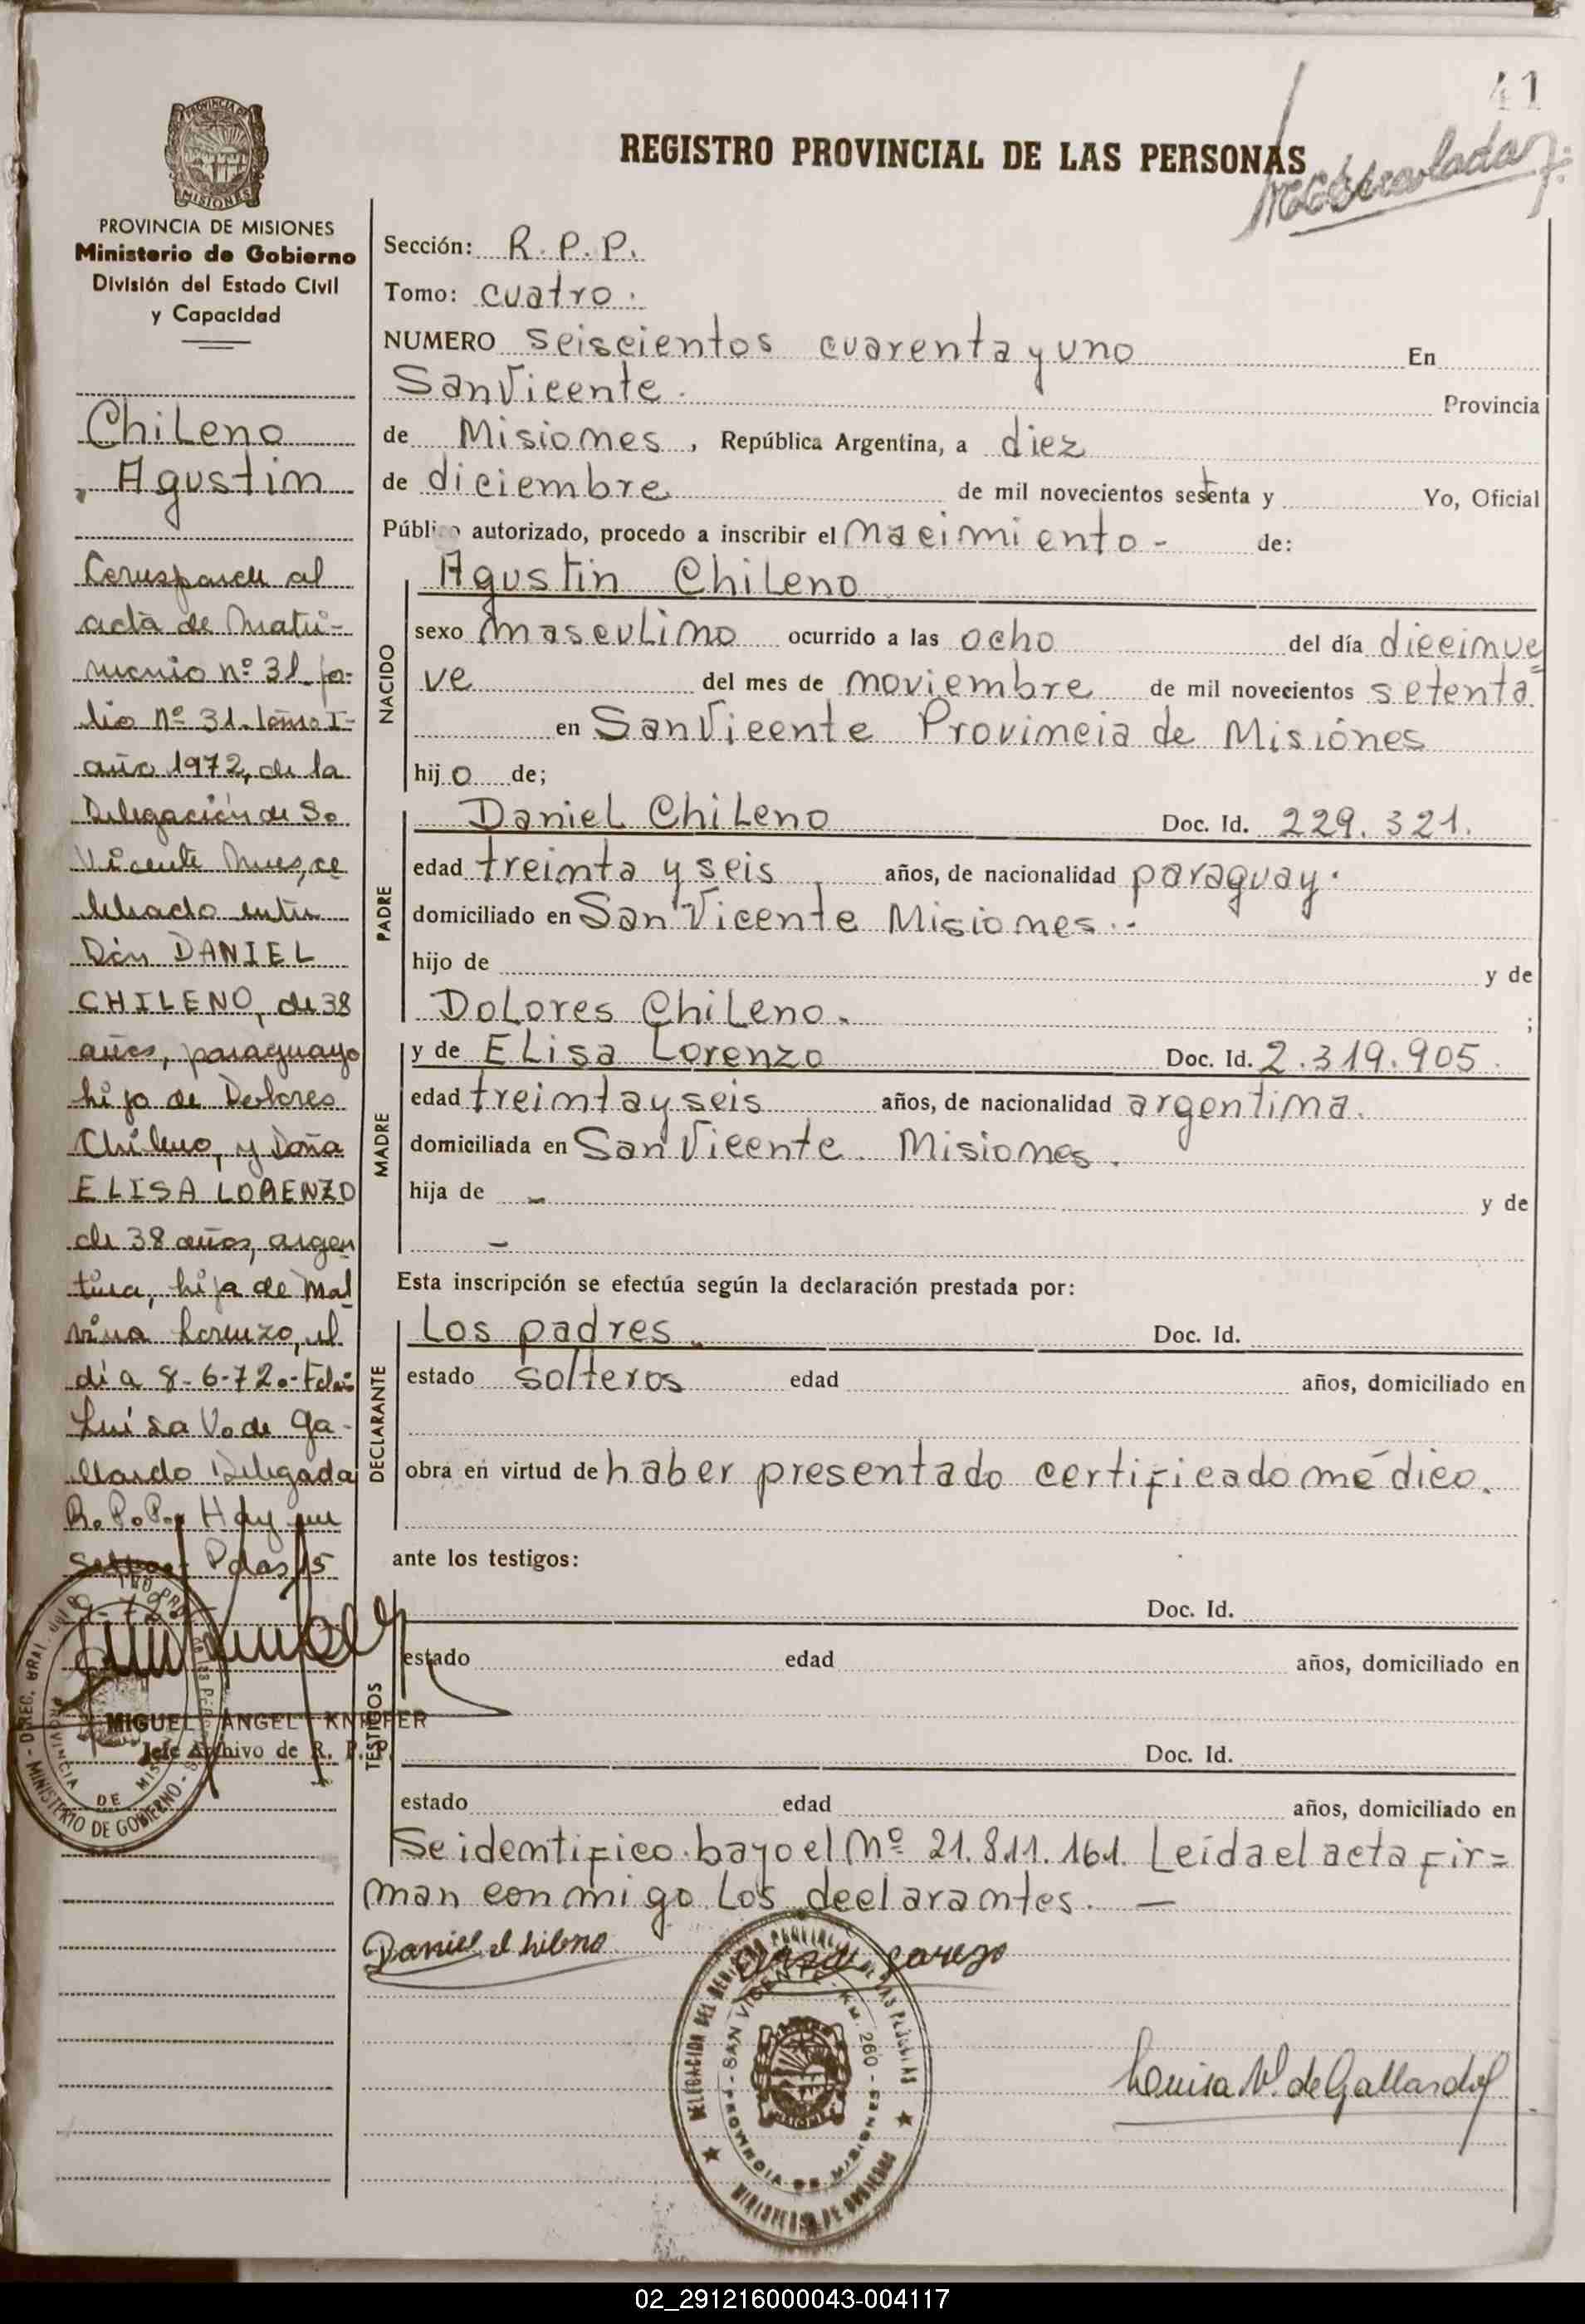 41
REGISTRO PROVINCIAL DE LAS PERSONAS
PROVINCIA DE MISIONES
Ministerio de Gobierno
División del Estado Civil
y Capacidad
Chileno
Agustin
Corresponde al
acta de Matri-
monio nº 31 fo-
lio nº 31. tomo I-
año 1972, de la
Delegación de Sn
Vicente Mnes, ce
lebrado entre
Don DANIEL
CHILENO, de 38
años, paraguayo
hijo de Dolores
Chileno, y Doña
ELISA LORENZO
de 38 años, argen
tina, hija de Mal
vina Lorenzo, el
día 8-6-72.- Fdo:
Luisa V. de Ga-
llardo Delegada
R.P.P. Hay un
Sello.- Pdas 15
MIGUEL ANGEL KNIPFER
Jefe Archivo de R. P. P.
MINISTERIO DE GOBIERNO
PROVINCIA DE MIS
Sección: R. P. P.
Tomo: cuatro.
NUMERO seiscientos cuarenta y uno En
San Vicente. Provincia
de Misiones, República Argentina, a diez
de diciembre de mil novecientos setenta y Yo, Oficial
Público autorizado, procedo a inscribir el nacimiento - de:
NACIDO
Agustin Chileno
sexo masculino ocurrido a las ocho del día diecinue=
ve del mes de noviembre de mil novecientos setenta
en San Vicente Provincia de Misiónes
hijo de;
PADRE
Daniel Chileno Doc. Id. 229.321.
edad treinta y seis años, de nacionalidad paraguay.
domiciliado en San Vicente Misiones.-
hijo de y de
Dolores Chileno. ;
MADRE
y de Elisa Lorenzo Doc. Id. 2.319.905.
edad treinta y seis años, de nacionalidad argentina.
domiciliada en San Vicente. Misiones.
hija de - y de
-
Esta inscripción se efectúa según la declaración prestada por:
DECLARANTE
Los padres. Doc. Id.
estado solteros edad años, domiciliado en
obra en virtud de haber presentado certificado médico.
ante los testigos:
TESTIGOS
Doc. Id.
estado edad años, domiciliado en
Doc. Id.
estado edad años, domiciliado en
Se identifico bayo el Nº 21.811.161. Leída el acta fir=
man conmigo los declarantes. —
Daniel chileno
DELEGACION DEL REGISTRO PROVINCIAL DE LAS PERSONAS
SAN VICENTE - KM. 260 -
PROVINCIA DE MISIONES
MINISTERIO DE GOBIERNO
Louisa V. de Gallardo
02_291216000043-004117